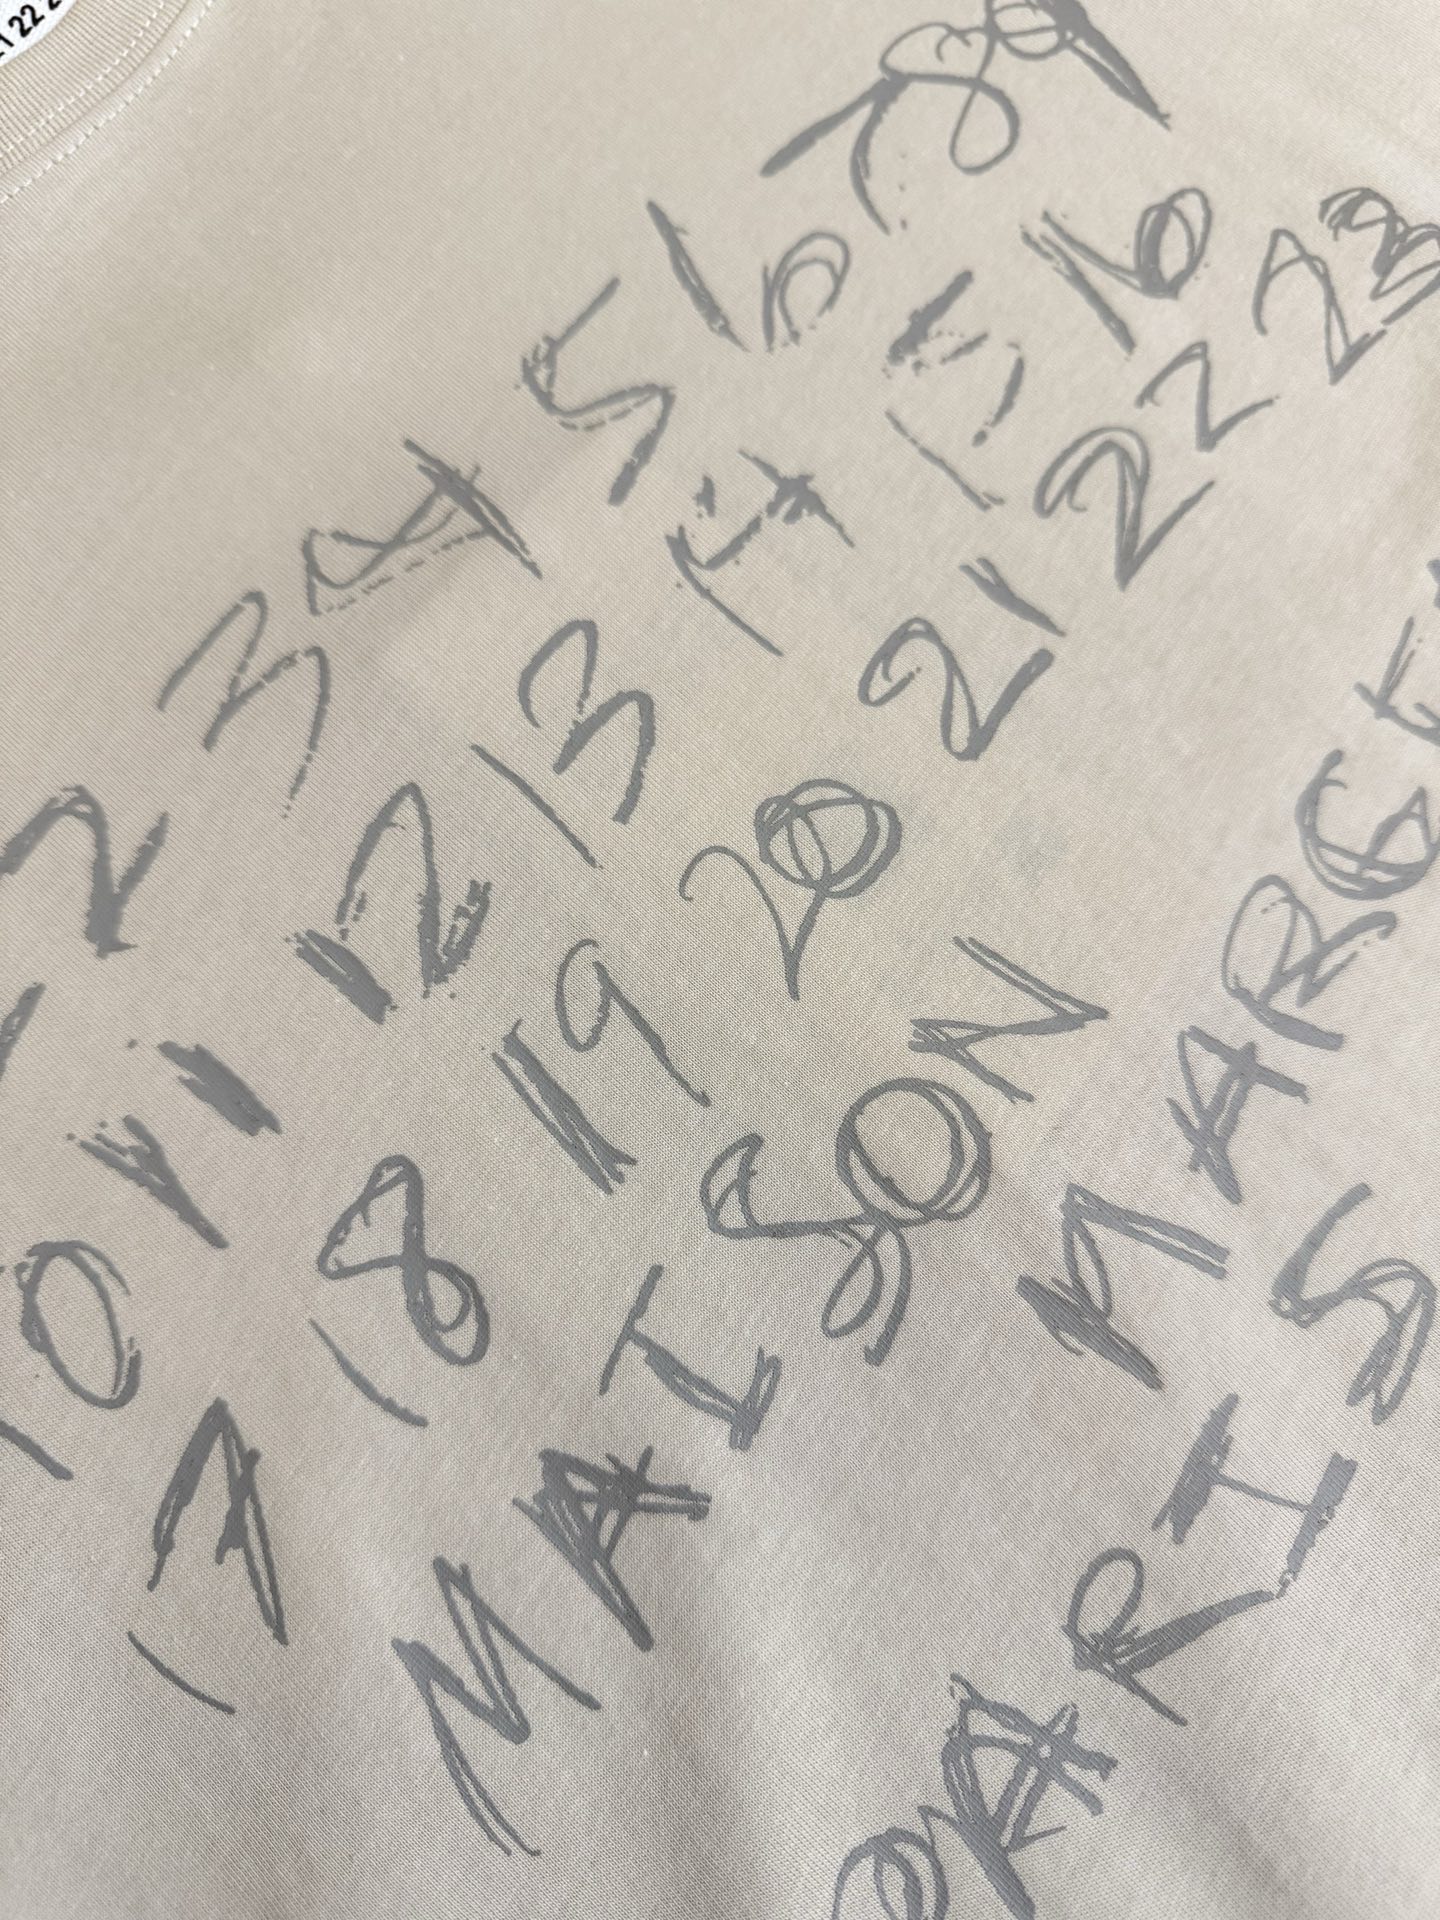 22
2 3 4 5 6 7 8 9
10 11 12 13 14 15 16
17 18 19 20 21 22 23
MAISON MARG
PARIS